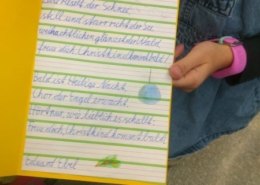 Leise rieselt der Schnee,
still und starr ruht der See
weihnachtlich glänzet der Wald
freue dich Christkind kommt bald!
Bald ist Heilige Nacht,
Chor der Engel erwacht,
Hört nur, wie lieblich es schallt:
freue dich Christkind kommt bald!
Eduard Ebel